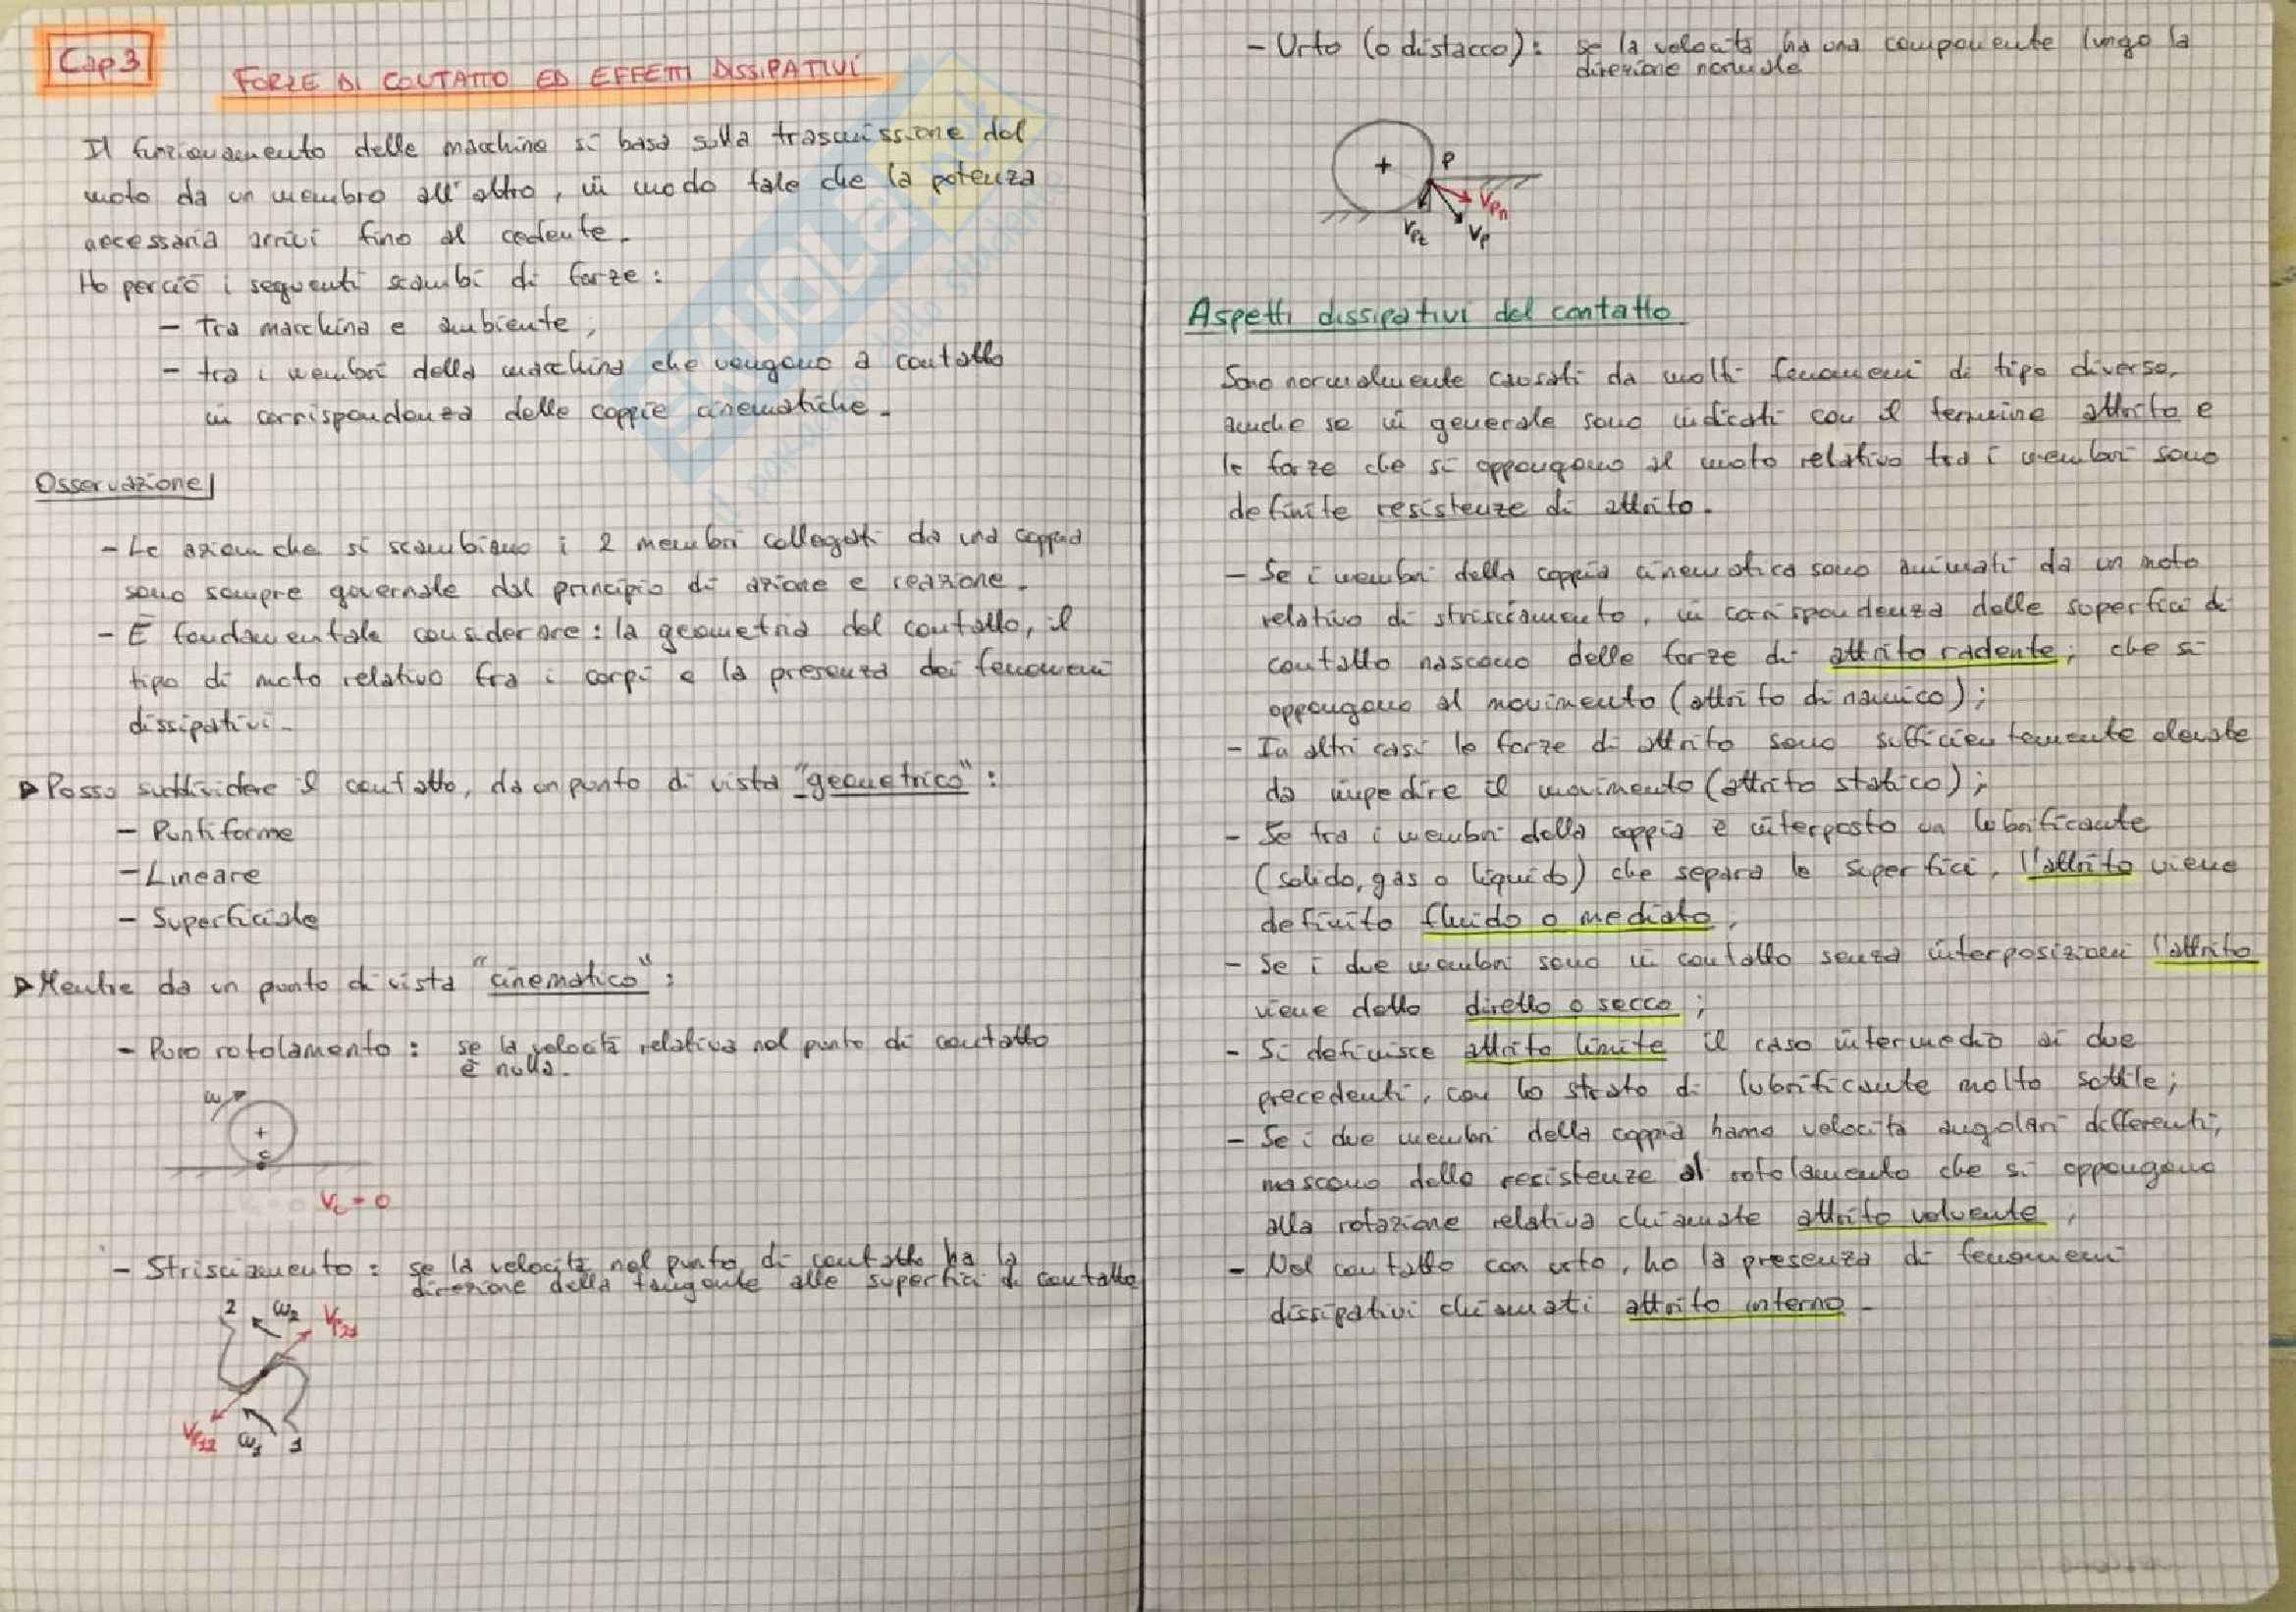 Cap 3
FORZE DI CONTATTO ED EFFETTI DISSIPATIVI
Il funzionamento delle macchine si basa sulla trasmissione del
moto da un membro all'altro, in modo tale che la potenza
necessaria arrivi fino al cedente.
Ho perciò i seguenti scambi di forze:
- tra macchina e ambiente;
- tra i membri della macchina che vengono a contatto
in corrispondenza delle coppie cinematiche.
Osservazione
- Le azioni che si scambiano i 2 membri collegati da una coppia
sono sempre governate dal principio di azione e reazione.
- È fondamentale considerare: la geometria del contatto, il
tipo di moto relativo fra i corpi e la presenza dei fenomeni
dissipativi.
Posso suddividere il contatto, da un punto di vista "geometrico":
- Puntiforme
- Lineare
- Superficiale
Mentre da un punto di vista "cinematico":
- Puro rotolamento: se la velocità relativa nel punto di contatto
è nulla.
ω
+
c
Vc = 0
- Strisciamento: se la velocità nel punto di contatto ha la
direzione della tangente alle superfici di contatto
2 ω2 VP21
VP12 ω1 1
- Urto (o distacco): se la velocità ha una componente lungo la
direzione normale
+ P
VPn
VPt VP
Aspetti dissipativi del contatto
Sono normalmente causati da molti fenomeni di tipo diverso,
anche se in generale sono indicati con il termine attrito e
le forze che si oppongono al moto relativo tra i membri sono
definite resistenze di attrito.
- Se i membri della coppia cinematica sono animati da un moto
relativo di strisciamento, in corrispondenza delle superfici di
contatto nascono delle forze di attrito radente; che si
oppongono al movimento (attrito dinamico);
- In altri casi le forze di attrito sono sufficientemente elevate
da impedire il movimento (attrito statico);
- Se tra i membri della coppia è interposto un lubrificante
(solido, gas o liquido) che separa le superfici, l'attrito viene
definito fluido o mediato;
- Se i due membri sono in contatto senza interposizioni l'attrito
viene detto diretto o secco;
- Si definisce attrito limite il caso intermedio ai due
precedenti, con lo strato di lubrificante molto sottile;
- Se i due membri della coppia hanno velocità angolari differenti,
nascono delle resistenze al rotolamento che si oppongono
alla rotazione relativa chiamate attrito volvente;
- Nel contatto con urto, ho la presenza di fenomeni
dissipativi chiamati attrito interno.